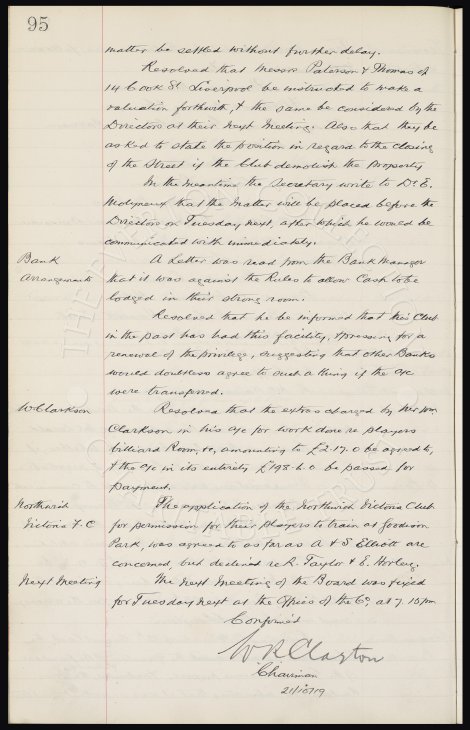 95
matter be settled without further delay.
Resolved that Messrs Paterson & Thomas of
14 Cook St Liverpool be instructed to make a
valuation forthwith, & the same be considered by the
Directors at their next Meeting. Also that they be
asked to state the position in regard to the closing
of the Street if the Club demolish the property
In the meantime the Secretary write to Dr E.
Molyneux that the matter will be placed before the
Directors on Tuesday next, after which he would be
communicated with immediately.
Bank Arrangements
A Letter was read from the Bank Manager
that it was against the Rules to allow Cash to be
lodged in their strong room.
Resolved that he be informed that this Club
in the past has had this facility, & pressing for a
renewal of the privilege, suggesting that other Banks
would doubtless agree to such a thing if the a/c
were transferred.
W Clarkson
Resolved that the extras charged by Mr Wm
Clarkson in his a/c for work done re players
billiard Room, &c, amounting to £2.17.0 be agreed to,
& the a/c in its entirety be passed for
payment.
Northwich
Victoria F.C
The application of the Northwich Victoria Club
for permission for their players to train at Goodison
Park, was agreed to as far as A & S Elliott are
concerned, but declined re R. Taylor & E.
Next Meeting
The next Meeting of the Board was fixed
for Tuesday next at the Office of the Co, at 7.15pm
Confirmed
W R Clayton
Chairman
21/10/19